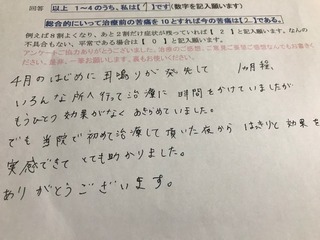 回答 以上 1~4のうち、私は{1}です (数字を記入願います)
総合的にいって治療前の苦痛を10とすれば今の苦痛は{2}である。
例えば8割よくなり、あと2割だけ症状が残っていれば{2}と記入願います。なんの
不具合もない、平常である場合は{0}と記入願います。
アンケートご協力ありがとうございました。治療のご感想、ご意見ご要望ご感想などもお書き
4月のはじめに耳鳴りが発先して 1か月経、
いろんな所へ行って治療に時間をかけていましたが
もうひとつ効果がなくあきらめていました。
でも当院で初めて治療して頂いた夜からはっきりと効果を
実感できてとても助かりました。
ありがとうございます。